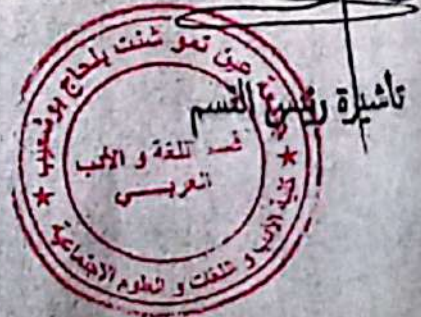 تأشيرة رئيس القسم
جامعة عين تموشنت بلحاج بوشعيب
قسم اللغة و الأدب
العربـــي
كلية الآداب و اللغات و العلوم الاجتماعية